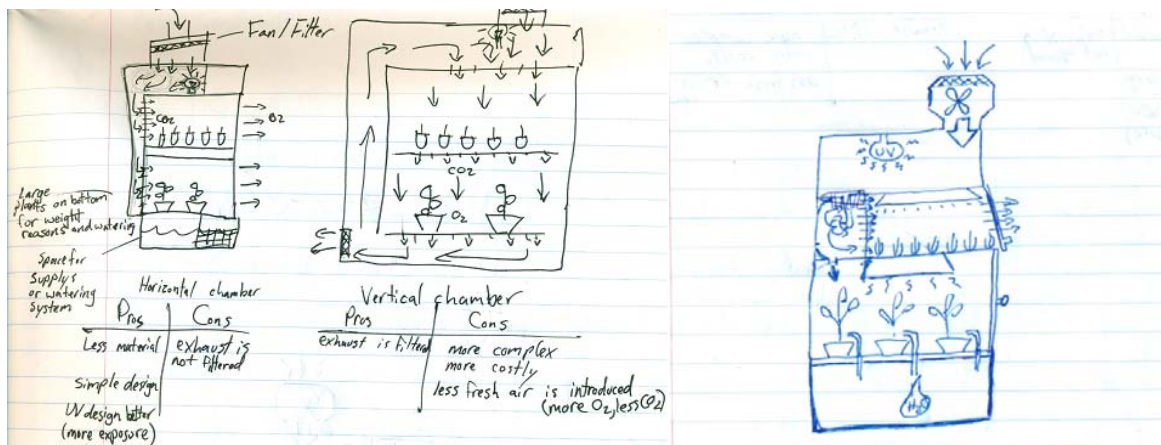 Fan/Filter
CO2
O2
Large
plants on bottom
for weight
reasons and watering
Space for
Supplys
or watering
system
Horizontal chamber
Pros
Cons
Less material
exhaust is
not filtered
Simple design
UV design better
(more exposure)
CO2
O2
Vertical chamber
Pros
Cons
exhaust is filtered
more complex
more costly
less fresh air is introduced
(more O2, less CO2)
UV
H2O